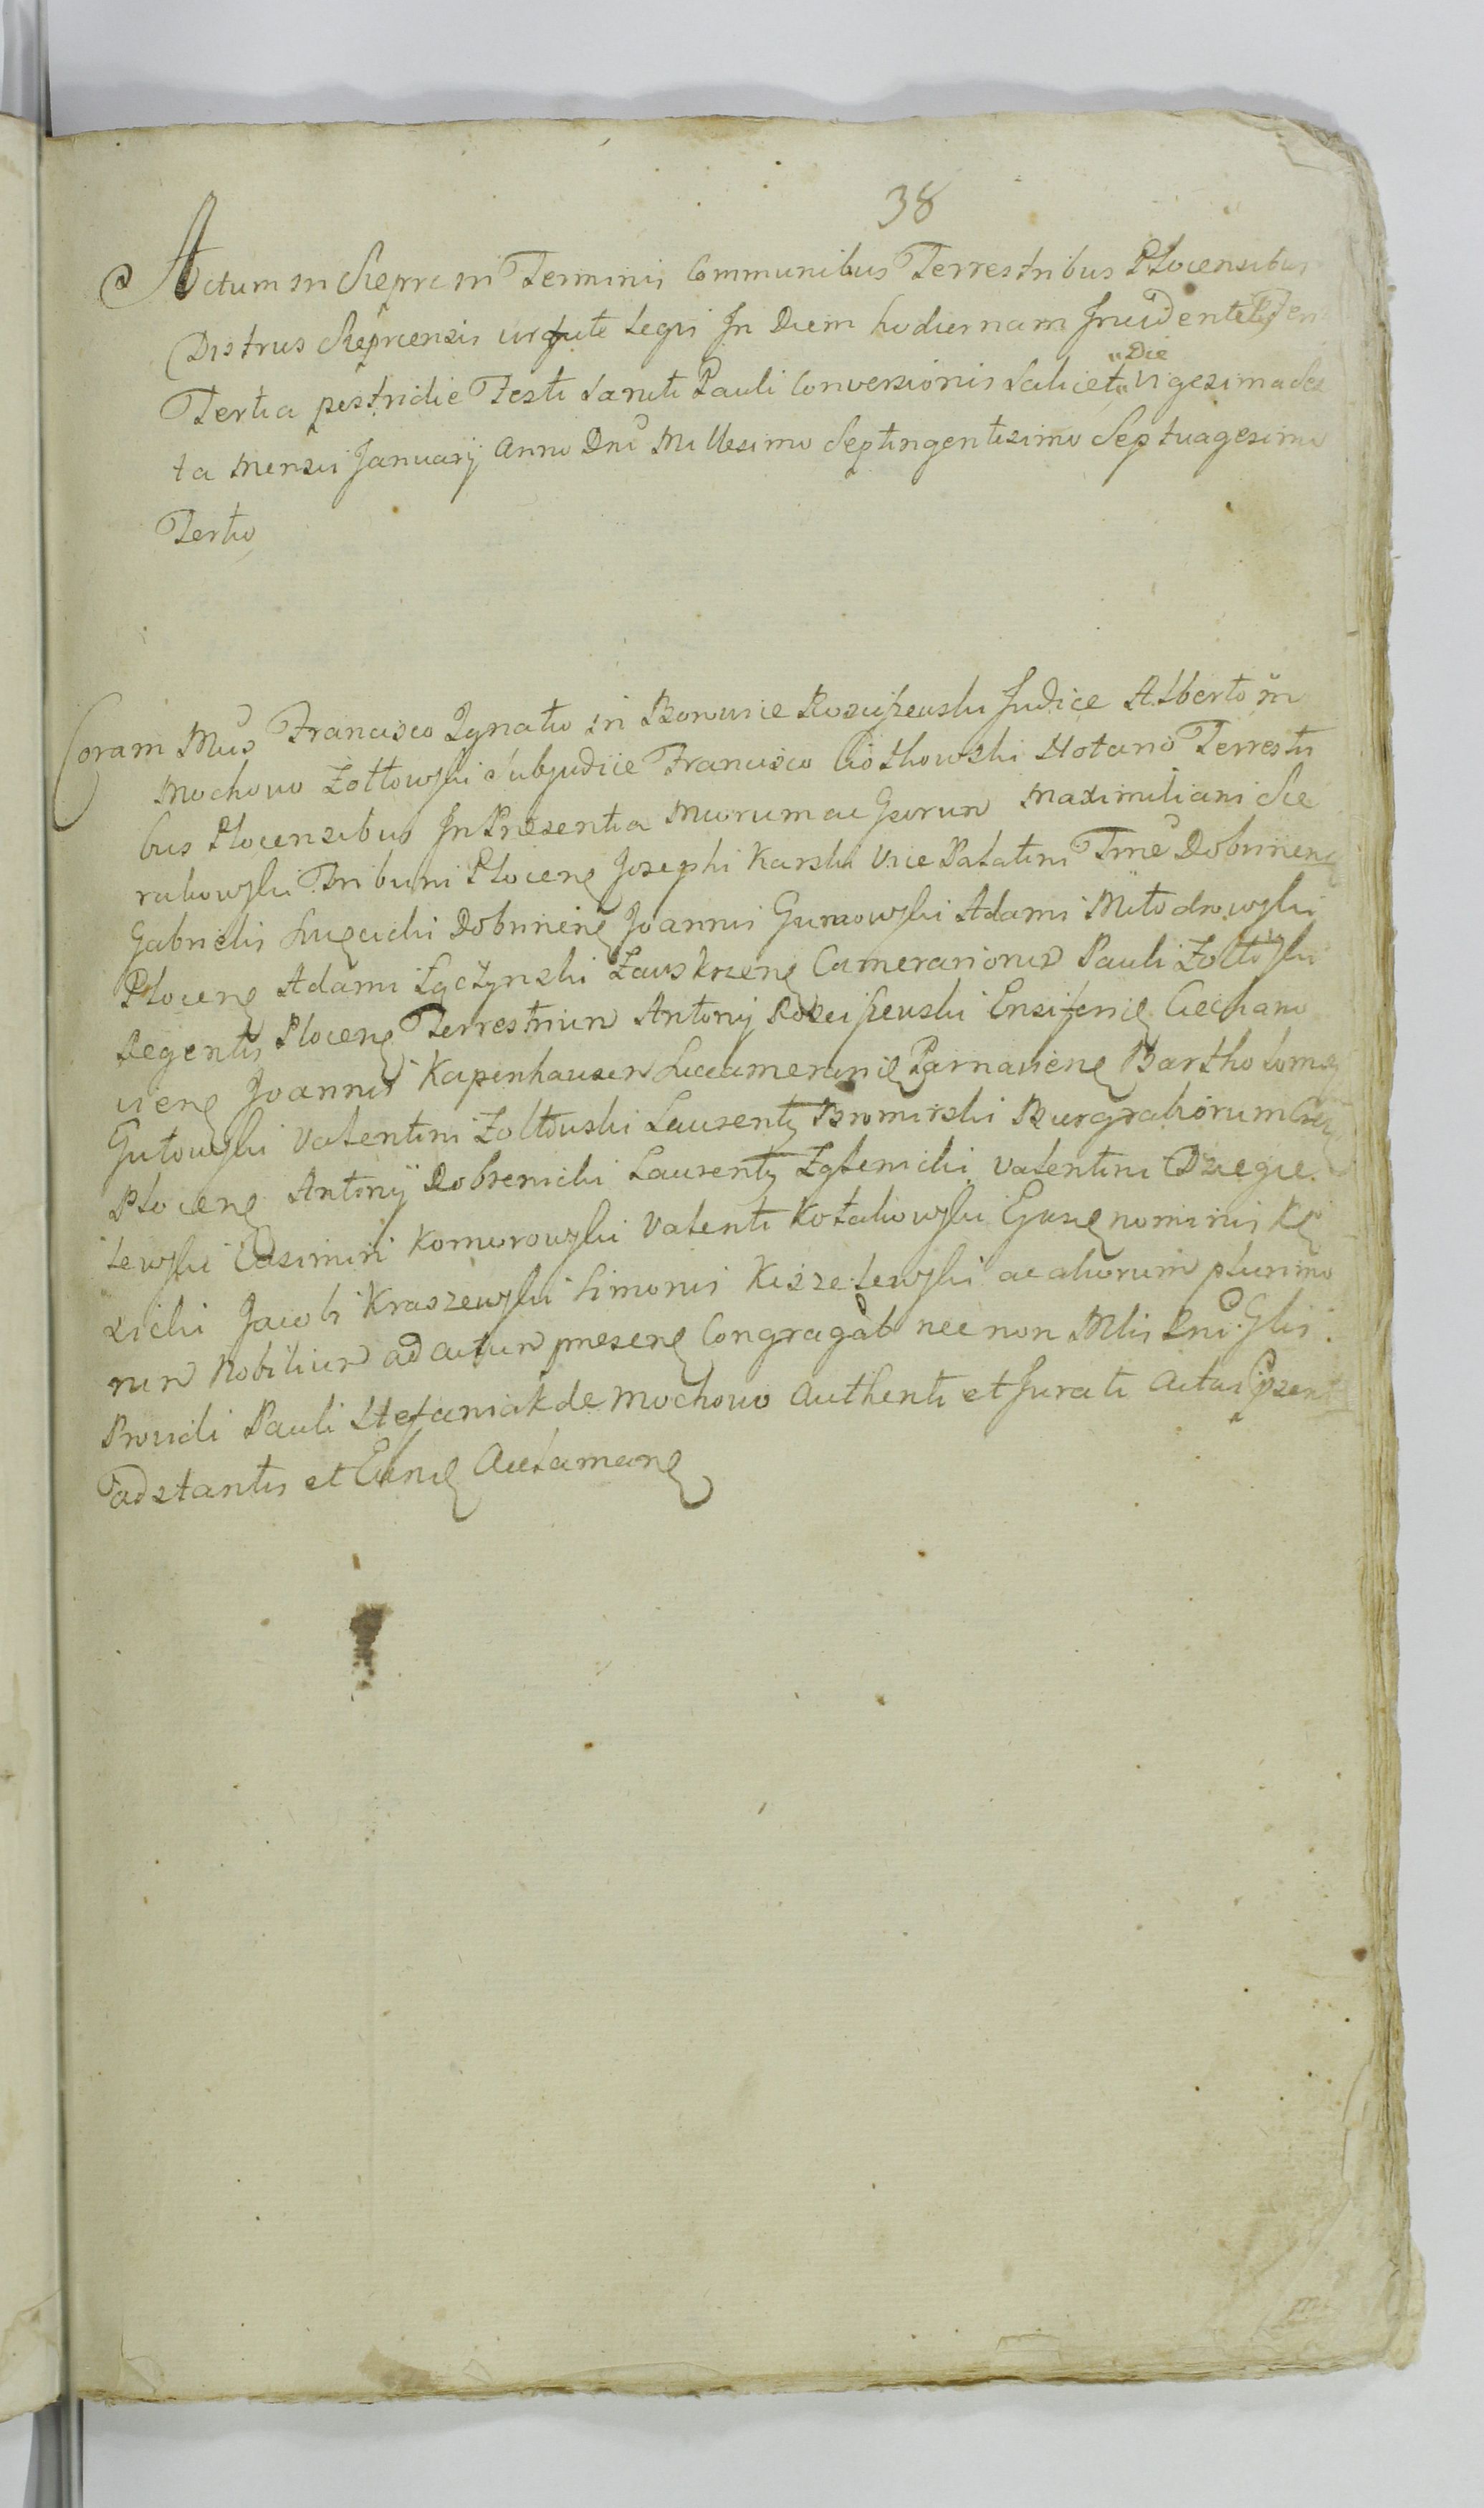 38
Actum in Sieprc in Terminis Communibus Terrestribus Plocensibus
Distrus Sieprcensis legis In Diem hodiernam
Tertia postridie Festi Sancti Pauli Conversionis Salicet "Die" vigesima Sex
ta Mensis January Anno Dni Millesimo Septingentesimo Septuagesimo
Tertio
Coram Francisco Ignatio in Borowice Rosciszewski Judice Alberto in
Mochowo Zołtowski Subjudice Francisco Ciołkowski Notario Terrestri
bus Plocensibus In Presentia Mcorum ac Gsorum Maximiliani Sie
rakowski Tribuni Plocen Josephi Karski Vice Palatini Trae Dobrinen
Gabrielis Dobrinen Joannis Gumowski Adami Młodnowski
Plocen Adami Łączynski Zawskrzen Camerariorum Pauli Zołtowski
Regentis Plocen Terrestrium Antonij Rosciszewski Ensiferi Ciechano
vien Joannis Kapenhausen Parnavien Bartholomei
Gutowski Valentini Zołtowski Laurenty Bromirski Burgrabiorum
Plocen Antonij Dobrenicki Laurenty Zglenicki Valentini Dziegie
lewski Casimiri Komorowski Valenti Kotakowski nominis
sicki Jacobi Kraszewski Simonis Kiszelewski ac aliorum plurimo
rum Nobilium ad actum presen Congregat nec non Mlis
Providi Pauli Stefaniak de Mochowo Authenti et Jurati
adstantis et